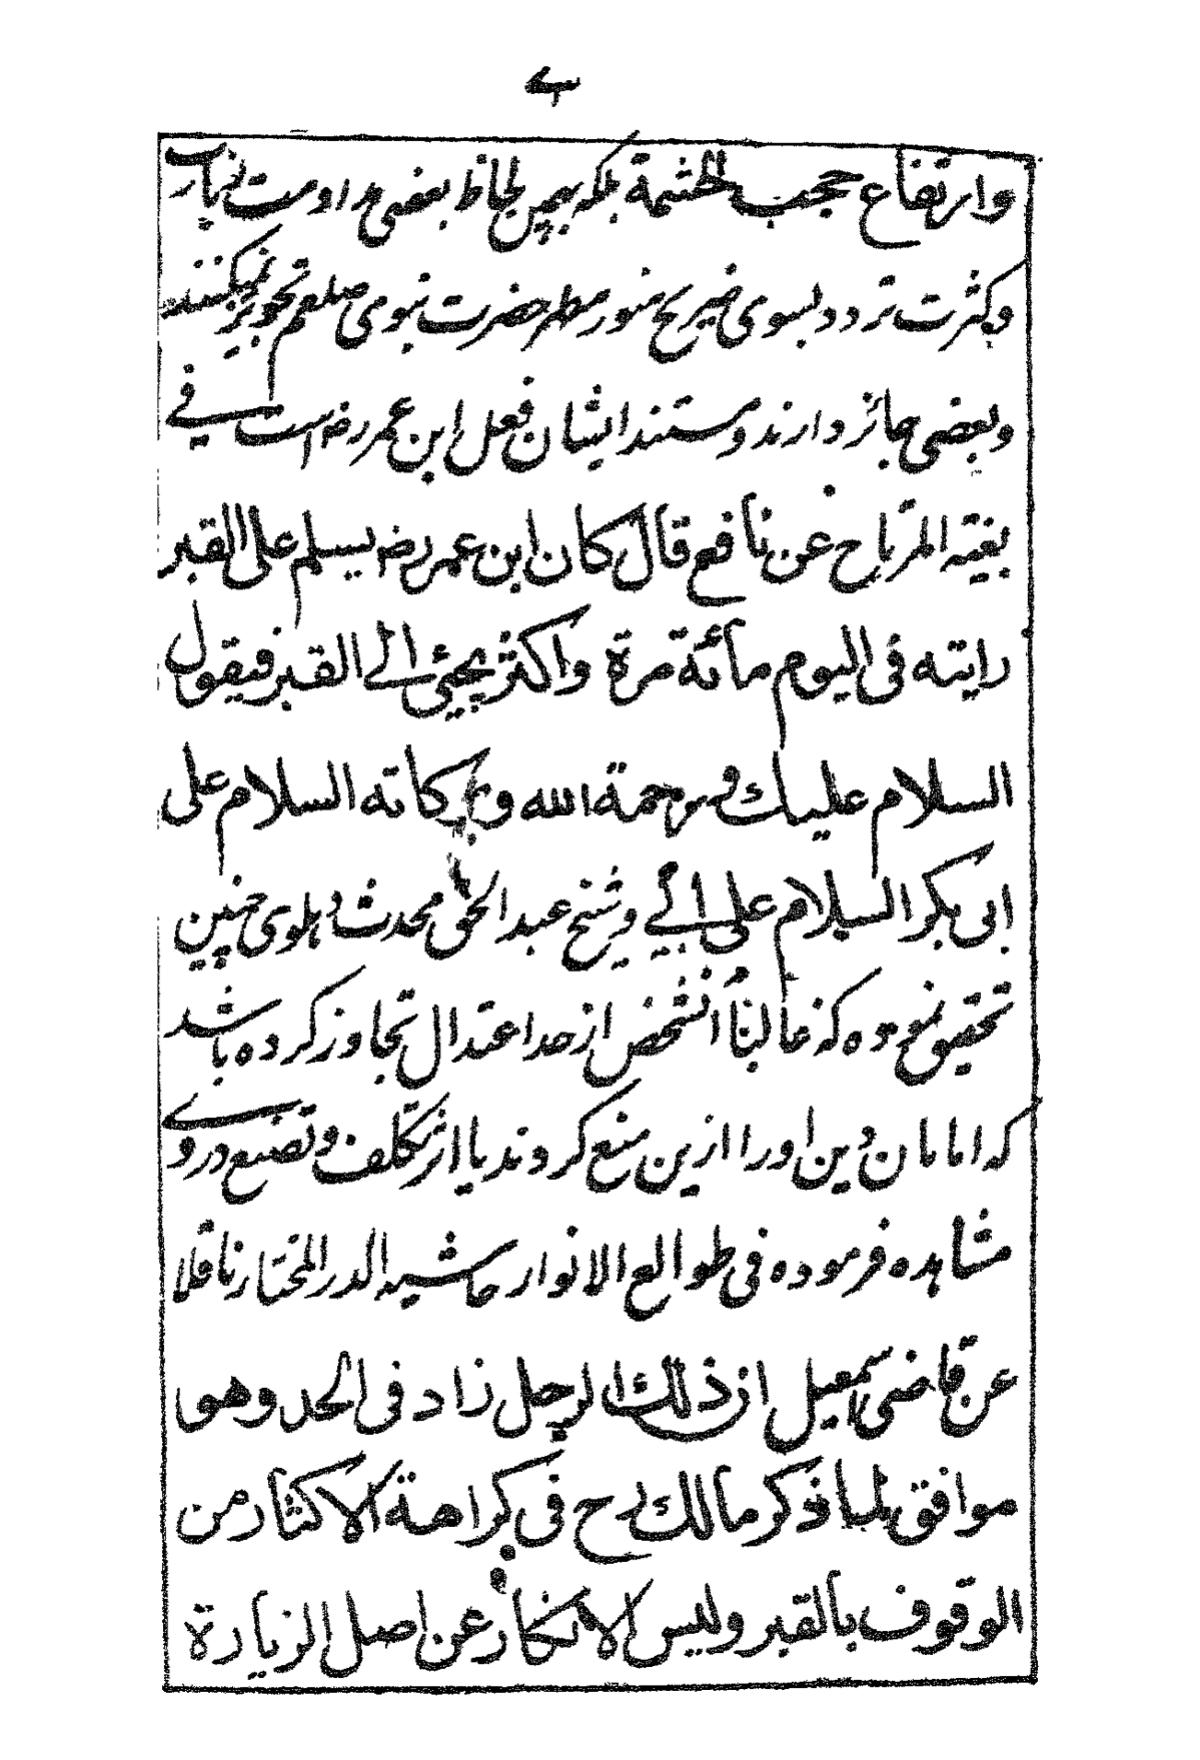 وارتفاع حجب الحشمة بلکه بهمین لحاظ بعضی مداومت زیارت
وکثرت تردد بسوی ضریح منور مطهر حضرت نبوی صلعم تجویز نمیکنند
وبعضی جائز دارند ومستند ایشان فعل ابن عمر رضه است في
بغیة المرتاح عن نافع قال کان ابن عمر رضه یسلم علی القبر
رایته فی الیوم مائة مرة واکثر یجیئ الے القبر فیقول
السلام علیك ورحمة الله وبرکاته السلام علی
ابی بکر السلام علی ابے وشیخ عبد الحق محدث دہلوی چنین
تحقیق نموده که غالباً آنشخص از حد اعتدال تجاوز کرده باشد
که امامان دین اورا ازین منع کردند یا اثر تکلف وتصنع در وے
مشاہده فرموده فی طوالع الانوار حاشیه الدر المختار ناقلا
عن قاضی سمعیل ان ذلك الرجل زاد فی الحد وهو
موافق لما ذکر مالك رح فی کراهة الاکثار من
الوقوف بالقبر ولیس الانکار عن اصل الزیارة